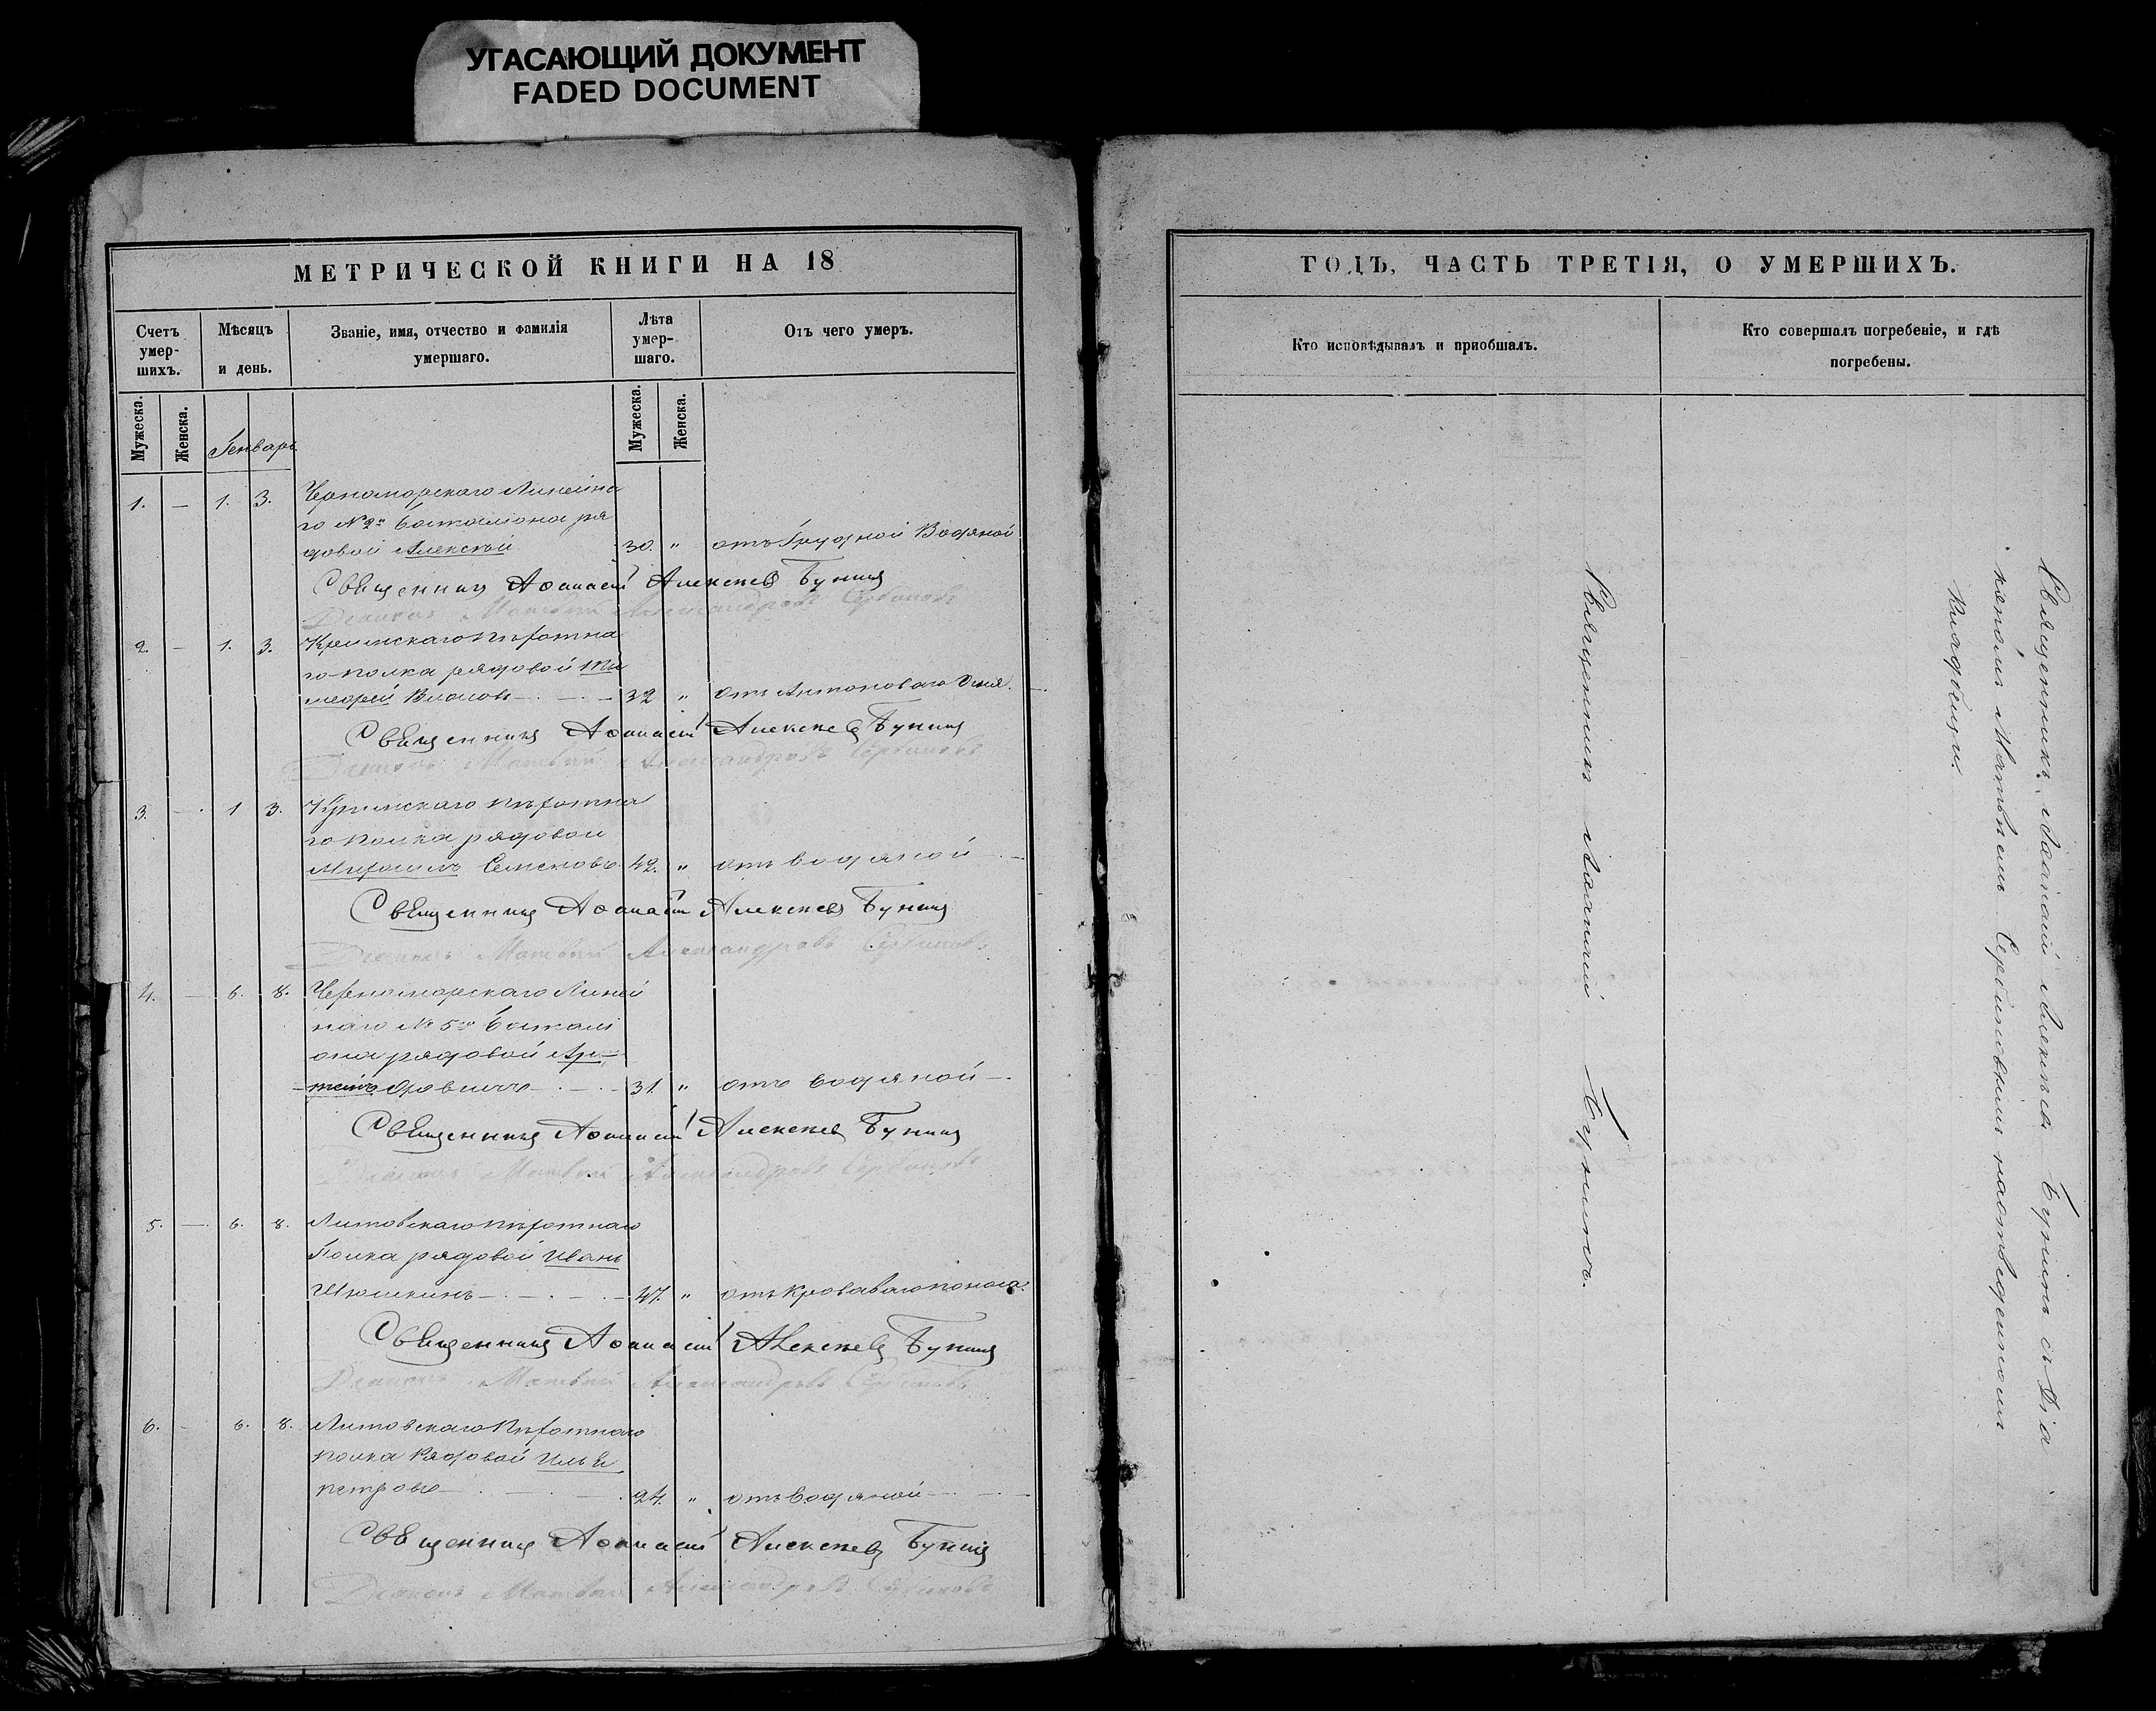 УГАСАЮЩИЙ ДОКУМЕНТ
FADED DOCUMENT
МЕТРИЧЕСКОЙ КНИГИ НА 18
Счетъ умер- шихъ.
Мѣсяцъ и день.
Званіе, имя, отчество и фамилія умершаго.
Лѣта умер- шаго.
Отъ чего умеръ.
Мужеска. Женска. Генварь Мужеска. Женска.
Черноморскаго Линейна
1. — 1. 3. го № 2го баталіона ря
довой Алексѣй 30. " отъ Грудной Водяной
Священникъ Аѳанасій Алексѣевъ Бунинъ
Діаконъ Матвѣй Александровъ Сербиновъ
2. — 1. 3. Крымскаго пѣхотна
го полка рядовой Ти
мофей Власовъ — 32 " отъ Антоноваго Огня.
Священникъ Аѳанасій Алексѣевъ Бунинъ
Діаконъ Матвѣй Александровъ Сербиновъ
3. — 1 3. пѣхотна
го полка рядовой
Семеновъ 42. " отъ водяной —
Священникъ Аѳанасій Алексѣевъ Бунинъ
Діаконъ Матвѣй Александровъ Сербиновъ
4. — 6. 8. Черноморскаго Линей
наго № 5го баталі
она рядовой Ар-
темъ — 31. " отъ водяной —
Священникъ Аѳанасій Алексѣевъ Бунинъ
Діаконъ Матвѣй Александровъ Сербиновъ
5. — 6. 8. Литовскаго пѣхотнаго
Полка рядовой Иванъ
— 47. " отъ кроваваго поноса.
Священникъ Аѳанасій Алексѣевъ Бунинъ
Діаконъ Матвѣй Александровъ Сербиновъ
6. — 6. 8. Литовскаго Пѣхотнаго
полка Рядовой Илья
петровъ — 24. " отъ водяной —
Священникъ Аѳанасій Алексѣевъ Бунинъ
Діаконъ Матвѣй Александровъ Сербиновъ
ГОДЪ, ЧАСТЬ ТРЕТІЯ, О УМЕРШИХЪ.
Кто исповѣдывалъ и пріобщалъ.
Кто совершалъ погребеніе, и гдѣ
погребены.
Священникъ Аѳанасій Бунинъ.
Священникъ Аѳанасій Алексѣевъ Бунинъ съ Діа
кономъ Матвѣемъ Сербиновымъ на отведенномъ
кладбищи.